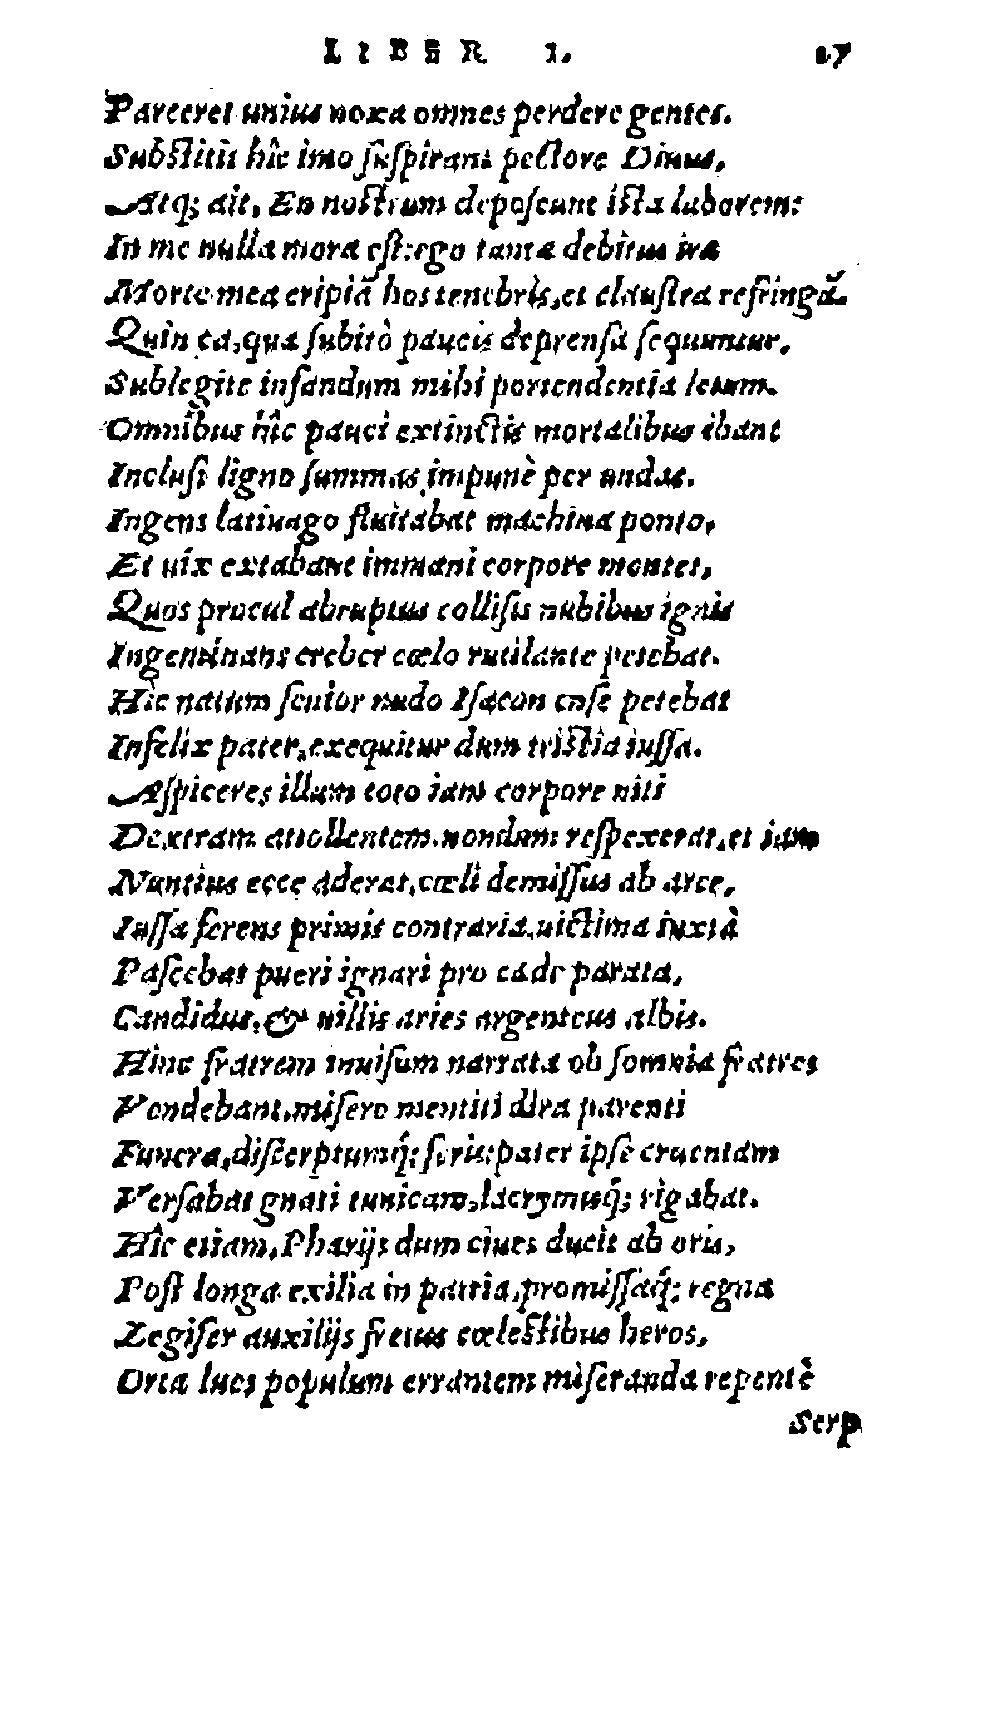 LIBER I. 27
Parceret unius noxa omnes perdere gentes.
Substitit hîc imo suspirans pectore Diuus,
Atq; ait, En nostrum deposcunt ista laborem:
In me nulla mora est: ego tanta debitus ira
Morte mea eripiã hos tenebris, et claustra refringã.
Quin ea, quæ subitò paucis deprensa sequuntur,
Sublegite infandum mihi portendentia letum.
Omnibus hîc pauci extinctis mortalibus ibant
Inclusi ligno summas impunè per undas.
Ingens latiuago fluitabat machina ponto,
Et uix extabant immani corpore montes,
Quos procul abruptus collisis nubibus ignis
Ingeminans creber cœlo rutilante petebat.
Hîc natum senior nudo Isacon ense petebat
Infelix pater, exequitur dum tristia iussa.
Aspiceres illum toto iam corpore niti
Dextram attollentem. nondum respexerat, et iam
Nuntius ecce aderat, cœli demissus ab arce,
Iussa ferens primis contraria. uictima iuxtà
Pascebat pueri ignari pro cæde parata,
Candidus, & uillis aries argenteus albis.
Hinc fratrem inuisum narrata ob somnia fratres
Vendebant, misero mentiti dira parenti
Funera, discerptumq́; feris: pater ipse cruentam
Versabat gnati tunicam, lacrymisq́; rigabat.
Hîc etiam, Pharijs dum ciues ducit ab oris,
Post longa exilia in patria, promissaq́; regna
Legifer auxilijs fretus cœlestibus heros,
Orta lues populum errantem miseranda repentè
Serp